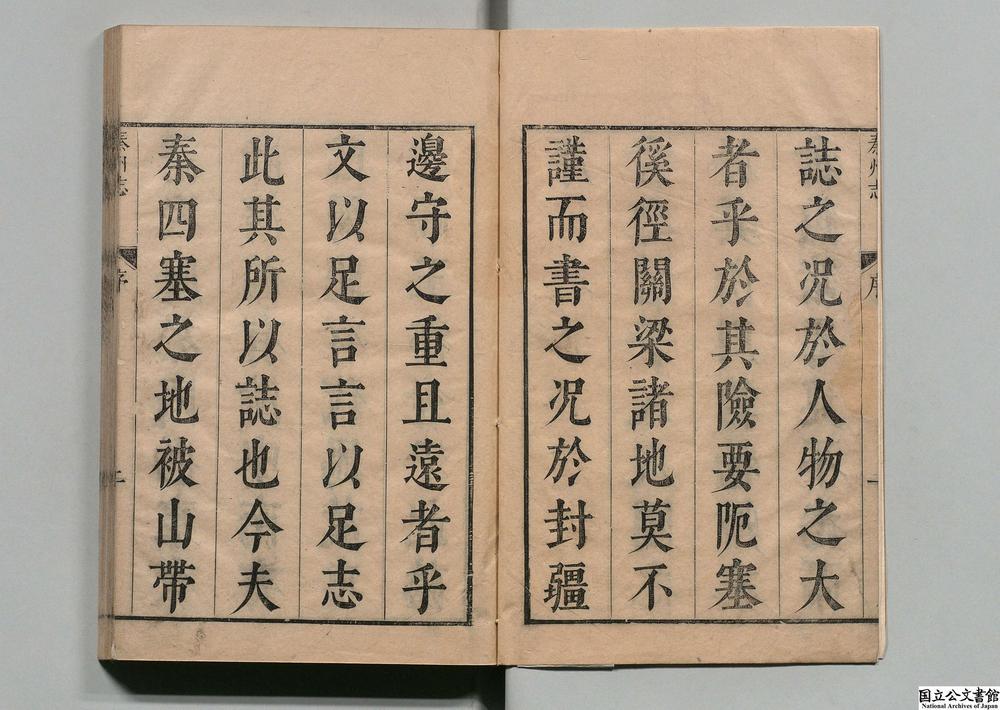 秦州志
序
誌之况於人物之大
者乎於其險要阨塞
徯徑關梁諸地莫不
謹而書之况於封疆
邊守之重且遠者乎
文以足言言以足志
此其所以誌也今夫
秦四塞之地被山帶
秦州志
序
国立公文書館
National Archives of Japan